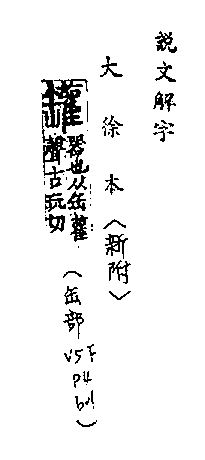 説文解字
大徐本〈新附〉
罐
器也从缶雚
聲古玩切
(缶部
V5下
P4
)